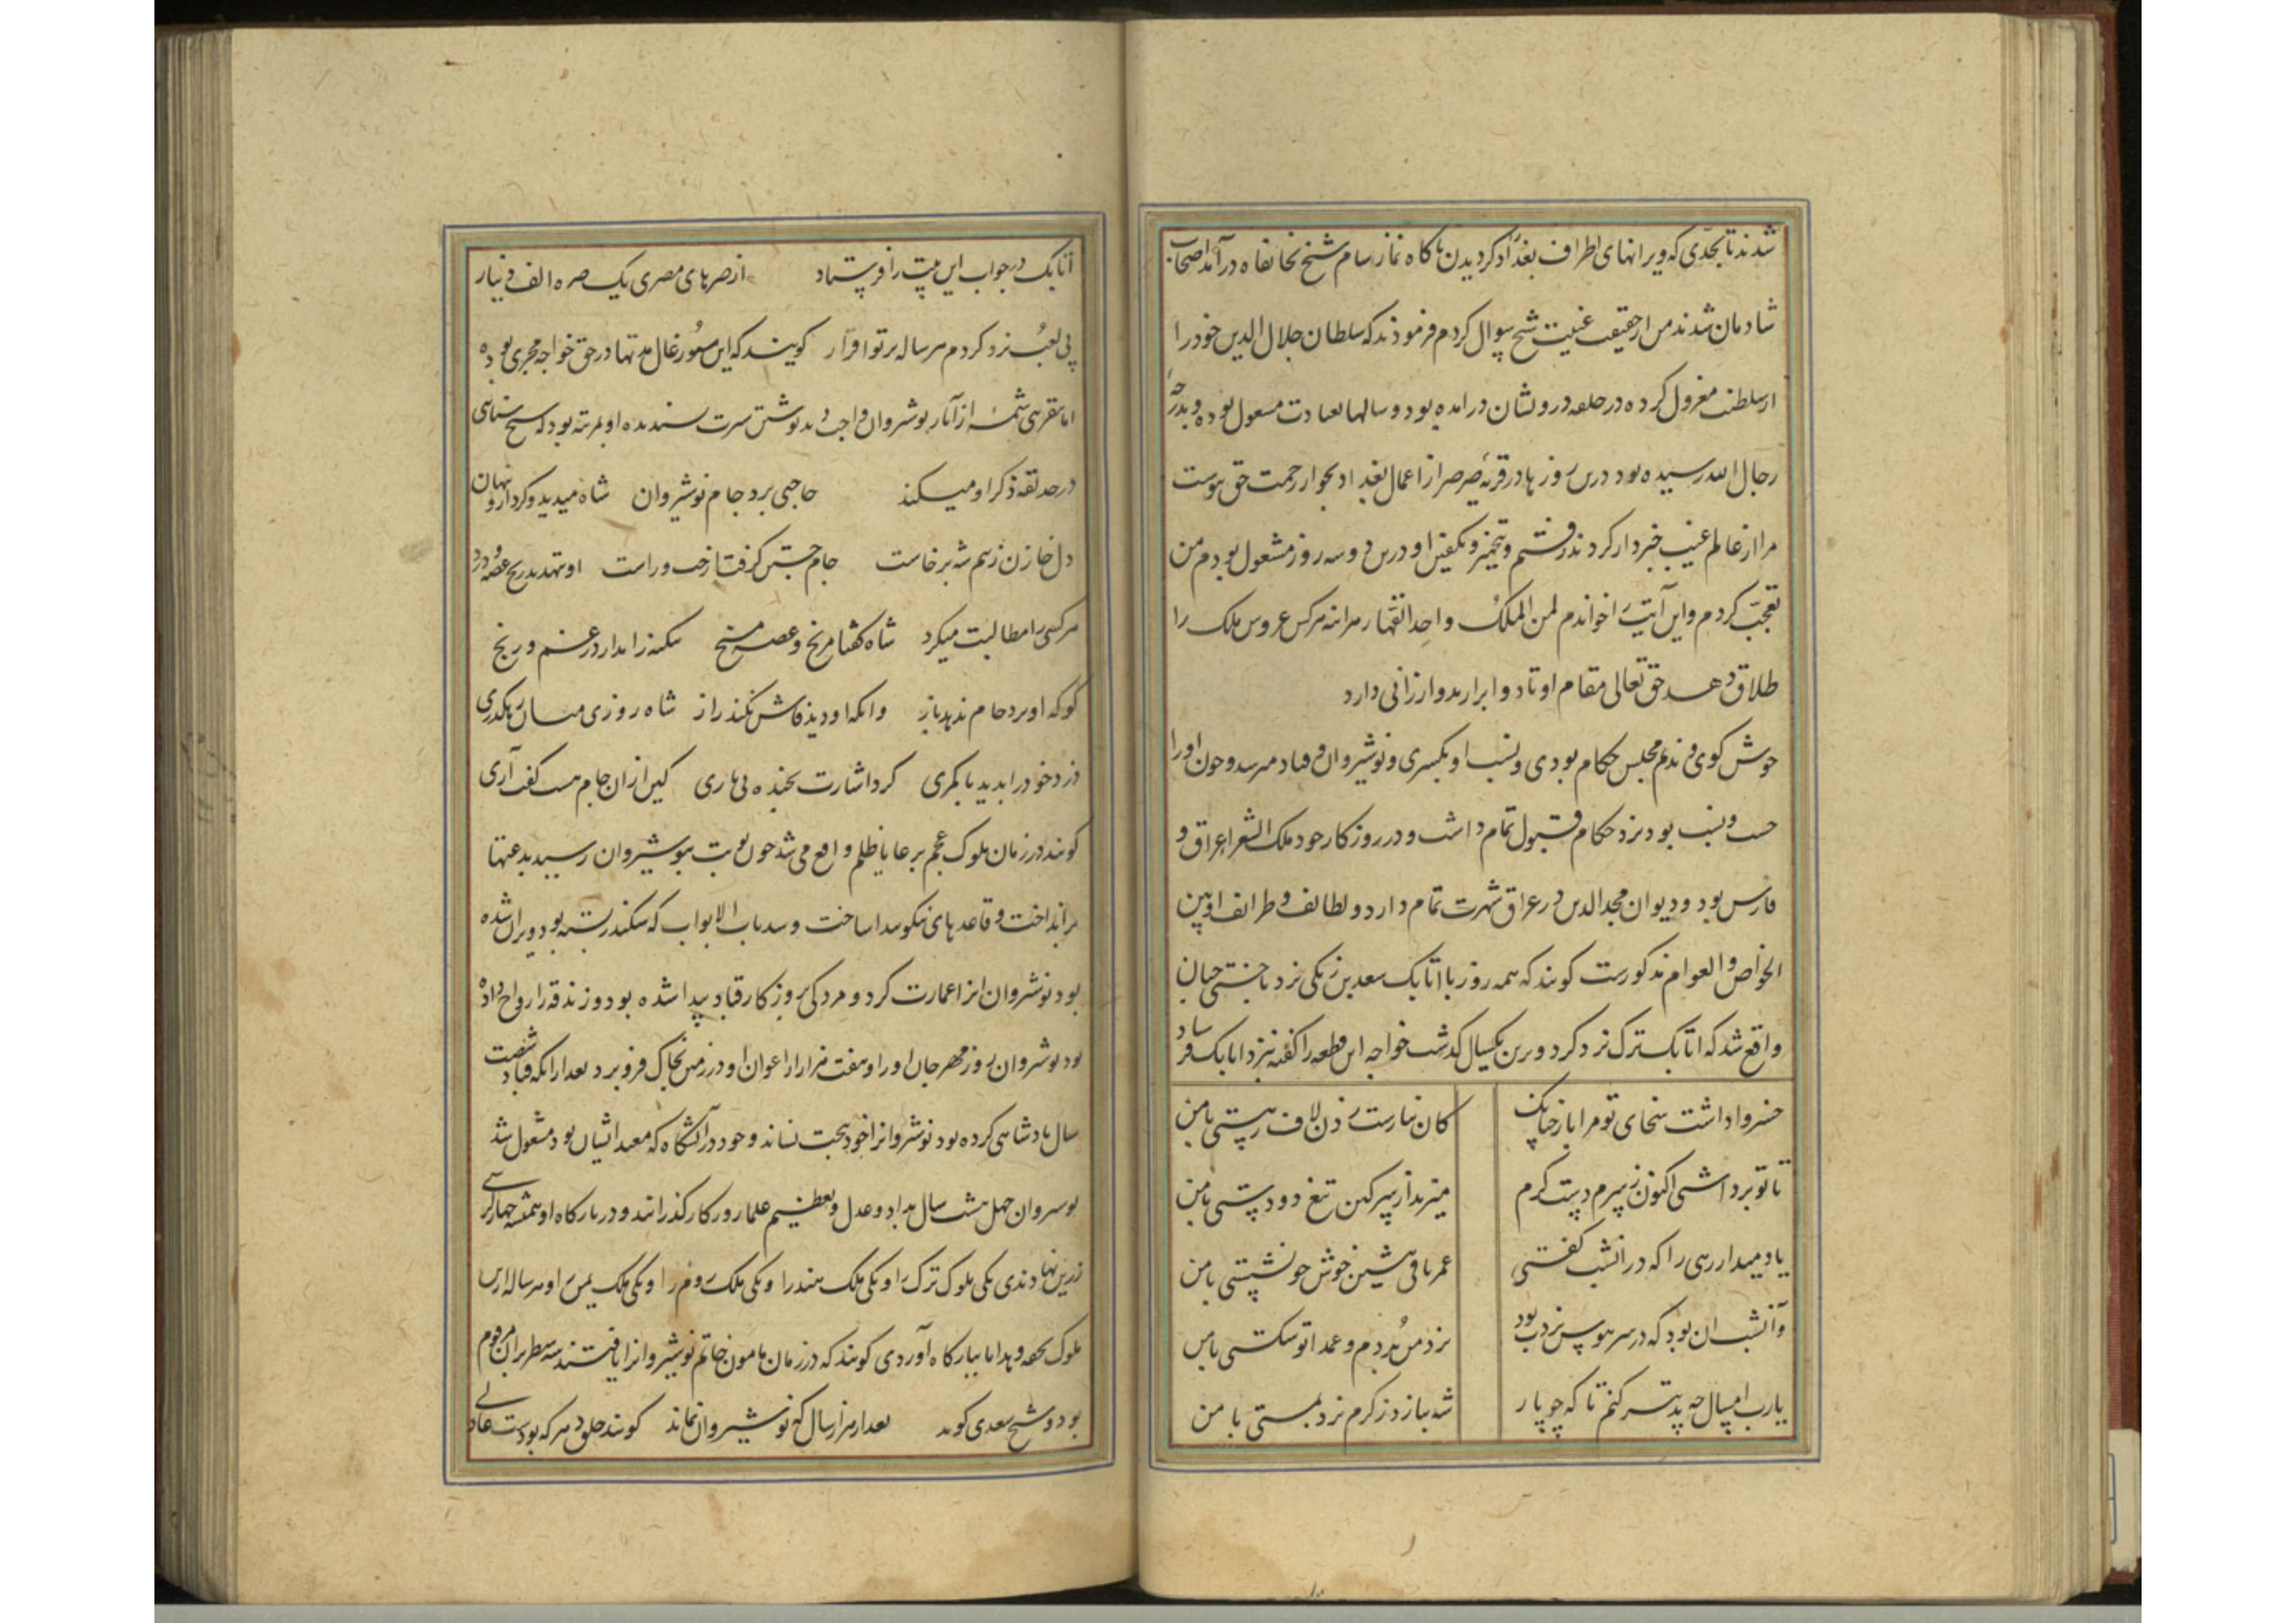 شدند تا بحدی که ویرانهای اطراف بغداد کردیدن تا کاه نماز شام شیخ بخانقاه درآمد اصحاب
شادمان شدند من از حقیقت غیبت شیخ سوال کردم فرمودند که سلطان جلال الدین خود را
از سلطنت معزول کرده در حلقه درویشان درامده بود و سالها بعبادت مشغول بوده و بدرجهٔ
رجال الله رسیده بود درین روزها در قریه صرصر از اعمال بغداد بجوار رحمت حق پیوست
مرا از عالم غیب خبردار کردند رفتم و بتجهیز و تکفین او درین دو سه روز مشغول بودم من
تعجب کردم و این آیت را خواندم لمن الملک واحد القهار هرانه هرکس عروس ملک را
طلاق دهد حق تعالی مقام اوتاد و ابرار بدو ارزانی دارد
خوش کوی و ندیم مجلس حکام بودی و نسب او بکسری و نوشیروان و قباد میرسد و چون او را
حسب و نسب بود نزد حکام قبول تمام داشت و در روزکار خود ملک الشعرا عراق و
فارس بود و دیوان مجد الدین در عراق شهرت تمام دارد و لطائف و ظرائف او بین
الخواص و العوام مذکورست کویند که همه روز با اتابک سعد بن زنکی نرد باختی چنان
واقع شد که اتابک ترک نرد کرد و برین یکسال کدشت خواجه این قطعه را کفته نزد اتابک فرستاد
خسروا داشت سخای تو مرا باز چنانک
کان نیارست زدن لاف ز پستی با من
تا تو برداشتی اکنون ز سرم دست کرم
میزند از سپر کین تیغ دو دستی با من
یاد میدار رهی را که در انشب کفتی
عمر باقی بنشین خوش چو نشستی با من
وآنشب ان بود که در سر هوس نردت بود
نرد من بردم و عمدا تو شکستی با من
یارب امسال چه تدبیر کنم تا که چو پار
شه بنازد ز کرم نرد ببستی با من
اتابک در جواب این بیت را فرستاد از صرهای مصری یک صره الف دینار
پی لعب نرد کردم هر ساله بر تو اقرار کویند که این سیورغال مدتها در حق خواجه مجری بوده
اما بتقریبی شمهٔ از آثار نوشروان واجب بد نوشتن سیرت پسندیده او بمرتبه بود که شیخ سنایی
در حدیقه ذکر او میکند حاجبی برد جام نوشیروان شاه میدید و کرد ازو نهان
دل خازن ز بیم شه برخاست جام جستن کرفت از چپ و راست او بتهدید و رنج و غصه و درد
هر کسی را مطالبت میکرد شاه کفتا مرنج و غصه مسنج بیکنه را مدار در غم و رنج
کو که او برد جام ندهد باز وانکه او دید فاش نکند راز شاه روزی میان رهکذری
دزد خود را بدید با کمری کرد اشارت بخنده بی یاری کین ازان جام هست کفت آری
کویند در زمان ملوک عجم بر رعایا ظلم واقع می شد چون نوبت بنوشیروان رسید بدعتها
برانداخت و قاعدهای نیکو بیدا ساخت و سد باب الابواب که سکندر بسته بود ویران شده
بود نوشروان انرا عمارت کرد و مزدکی بروزکار قباد پیدا شده بود و زندقه را رواج داده
بود نوشروان روز مهرجان او را و هفت هزار از اعوان او در زمین بخاک فرو برد بعد از انکه قباد شصت
سال پادشاهی کرده بود نوشروانرا خود بتخت نشاند و خود در آتشکاه که معبد ایشان بود مشغول شد
نوشروان چهل هشت سال بداد و عدل و تعظیم علما روزکار کذرانید و در بارکاه او همیشه چهار کرسی
زرین نهادندی یکی ملوک ترک را و یکی ملک هند را و یکی ملک روم را و یکی ملک یمن را و هر ساله این
ملوک تحفه و هدایا ببارکاه آوردی کویند که در زمان مامون خاتم نوشیروانرا یافتند سه سطر بران مرقوم
بود و شیخ سعدی کوید بعد از هزار سال که نوشیروان نماند کویند خلق هرکه بودست عادلی